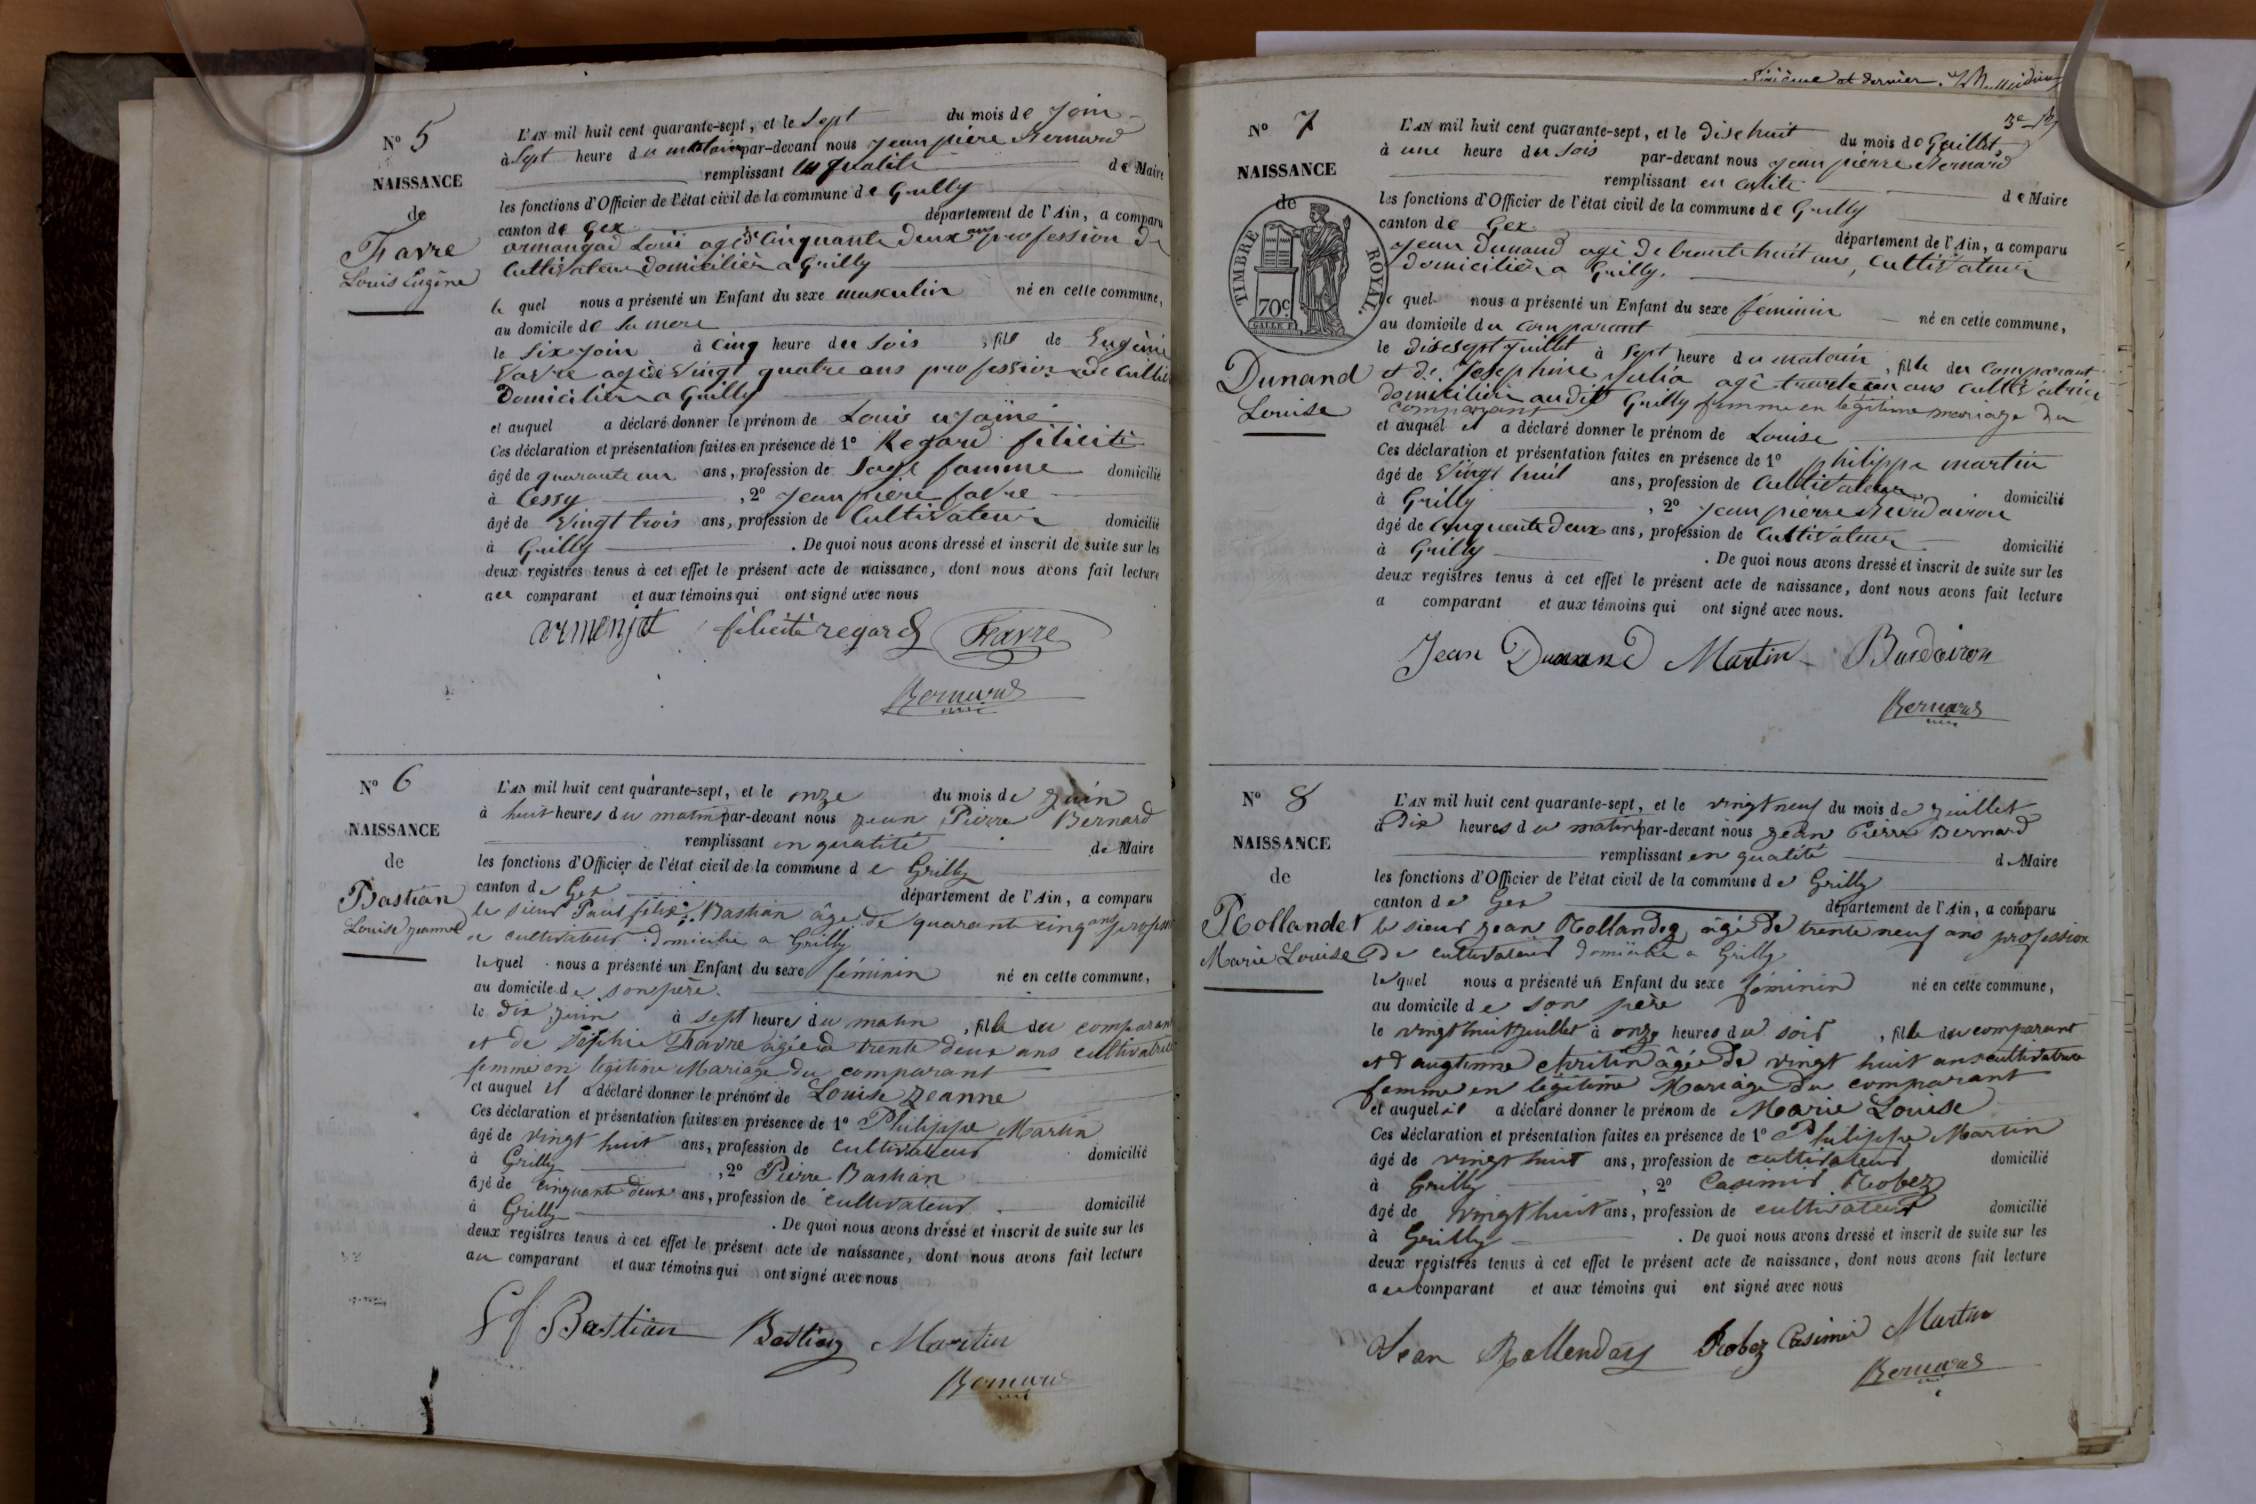 N° 5
NAISSANCE
de
Favre
Louis Eugène
L'AN mil huit cent quarante-sept, et le Sept du mois de Join
à Sept heure du matain par-devant nous jean pière Bernard
remplissant en qualité de Maire
les fonctions d'Officier de l'état civil de la commune de Grilly
canton de Gex département de l'Ain, a comparu
armangad Loui agé de Cinquante deux ans profession de
Cultivateur domicilièr a Grilly
le quel nous a présenté un Enfant du sexe masculin né en cette commune,
au domicile de Sa mere
le Six Join à Cinq heure du Soir, fils de Eugénie
Favre agée vingt quatre ans profession de Cultiv
Domicilièr a Grilly
et auquel a déclaré donner le prénom de Louis
Ces déclaration et présentation faites en présence de 1° Regard félicité
âgé de quarante un ans, profession de Sage famme domicilié
à Cessy, 2° Jean pière favre
âgé de Vingt trois ans, profession de Cultivateur domicilié
à Grilly. De quoi nous avons dressé et inscrit de suite sur les
deux registres tenus à cet effet le présent acte de naissance, dont nous avons fait lecture
au comparant et aux témoins qui ont signé avec nous
armenjat félicité regard Favre
Bernard
N° 6
NAISSANCE
de
Bastian
Louise jeanne
L'AN mil huit cent quarante-sept, et le onze du mois de juin
à huit heures du matin par-devant nous jean Pierre Bernard
remplissant en qualité de Maire
les fonctions d'Officier de l'état civil de la commune de Grilly
canton de Gex département de l'Ain, a comparu
le sieur Paul félix Bastian âgé de quarante cinq ans profession
de cultivateur domicilié a Grilly
lequel nous a présenté un Enfant du sexe féminin né en cette commune,
au domicile de son père
le dix juin à sept heures du matin, fille du comparant
et de Sophie Favre agée de trente deux ans cultivatrice
femme en légitime Mariage du comparant
et auquel il a déclaré donner le prénom de Louise jeanne
Ces déclaration et présentation faites en présence de 1° Philippe Martin
âgé de vingt huit ans, profession de cultivateur domicilié
à Grilly, 2° Pierre Bastian
âgé de cinquante deux ans, profession de cultivateur domicilié
à Grilly. De quoi nous avons dressé et inscrit de suite sur les
deux registres tenus à cet effet le présent acte de naissance, dont nous avons fait lecture
au comparant et aux témoins qui ont signé avec nous
Bastian Bastian Martin
Bernard
Sixième et dernier
N° 7
NAISSANCE
de
TIMBRE ROYAL
70c
Dunand
Louise
L'AN mil huit cent quarante-sept, et le dixehuit du mois de Juillet
à une heure du sois par-devant nous jean pierre Bernard
remplissant en calité de Maire
les fonctions d'Officier de l'état civil de la commune de Grilly
canton de Gex département de l'Ain, a comparu
Jean Dunand agé de trante huit ans, Cultivateur
domicilièr a Grilly.
le quel nous a présenté un Enfant du sexe féminin né en cette commune,
au domicile du comparant
le disesept Juillet à Sept heure du matain, fille du comparant
et de Josephine Julia agé ans cultivatrice
domicilièr audit Grilly femme en légitime mariage du
comparant
et auquel il a déclaré donner le prénom de Louise
Ces déclaration et présentation faites en présence de 1° philippe martin
âgé de Vingt huit ans, profession de Cultivateur domicilié
à Grilly, 2° Jean pierre
âgé de Cinquente deux ans, profession de Cultivateur domicilié
à Grilly. De quoi nous avons dressé et inscrit de suite sur les
deux registres tenus à cet effet le présent acte de naissance, dont nous avons fait lecture
a comparant et aux témoins qui ont signé avec nous.
Jean Dunand Martin Baudoiron
Bernard
N° 8
NAISSANCE
de
Rollandet
Marie Louise
L'AN mil huit cent quarante-sept, et le vingt neuf du mois de juillet
à Dix heures du matin par-devant nous jean Pierre Bernard
remplissant en qualité de Maire
les fonctions d'Officier de l'état civil de la commune de Grilly
canton de Gex département de l'Ain, a comparu
le sieur jean Rollandez âgé de trente neuf ans profession
de cultivateur domicilié a Grilly
lequel nous a présenté un Enfant du sexe féminin né en cette commune,
au domicile de son père
le vingt huit juillet à onze heures du soir, fille du comparant
et d'augtinne Christin âgée de vingt huit ans cultivatrice
femme en légitime Mariage du comparant
et auquel il a déclaré donner le prénom de Marie Louise
Ces déclaration et présentation faites en présence de 1° Philippe Martin
âgé de vingt huit ans, profession de cultivateur domicilié
à Grilly, 2° Casimir Robez
âgé de vingt huit ans, profession de cultivateur domicilié
à Grilly. De quoi nous avons dressé et inscrit de suite sur les
deux registres tenus à cet effet le présent acte de naissance, dont nous avons fait lecture
au comparant et aux témoins qui ont signé avec nous
Jean Rollendez Robez Casimir Martin
Bernard